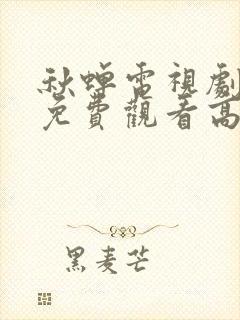 秋蟬電視劇
免費觀看高
黑麦芒